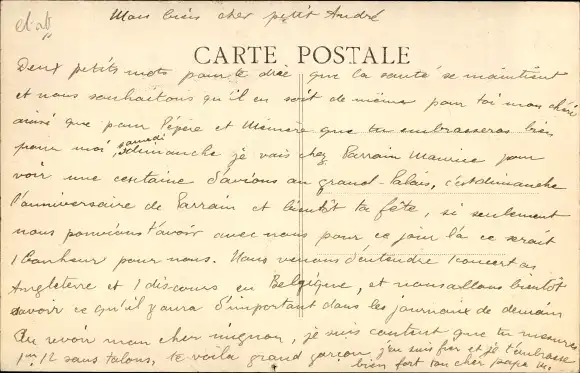 Mon bien cher petit André
CARTE POSTALE
Deux petits mots pour te dire que la santé se maintient
et nous souhaitons qu'il en soit de même pour toi mon chéri
ainsi que pour Pépère et Mémère que tu embrasseras bien
pour moi, samedi dimanche je vais chez Parrain Maurice pour
voir une centaine d'avions au grand-Palais, c'est dimanche
l'anniversaire de Parrain et bientôt ta fête, si seulement
nous pouvions t'avoir avec nous pour ce jour là ce serait
1 bonheur pour nous. Nous venons d'entendre 1 concert
Angleterre et 1 discours en Belgique, et nous allons bientôt
savoir ce qu'il y aura d'important dans les journaux de demain
Au revoir mon cher mignon, je suis content que tu mesures
1m,12 sans talons, te voilà grand garçon j'en suis fier et je t'embrasse
bien fort ton cher papa